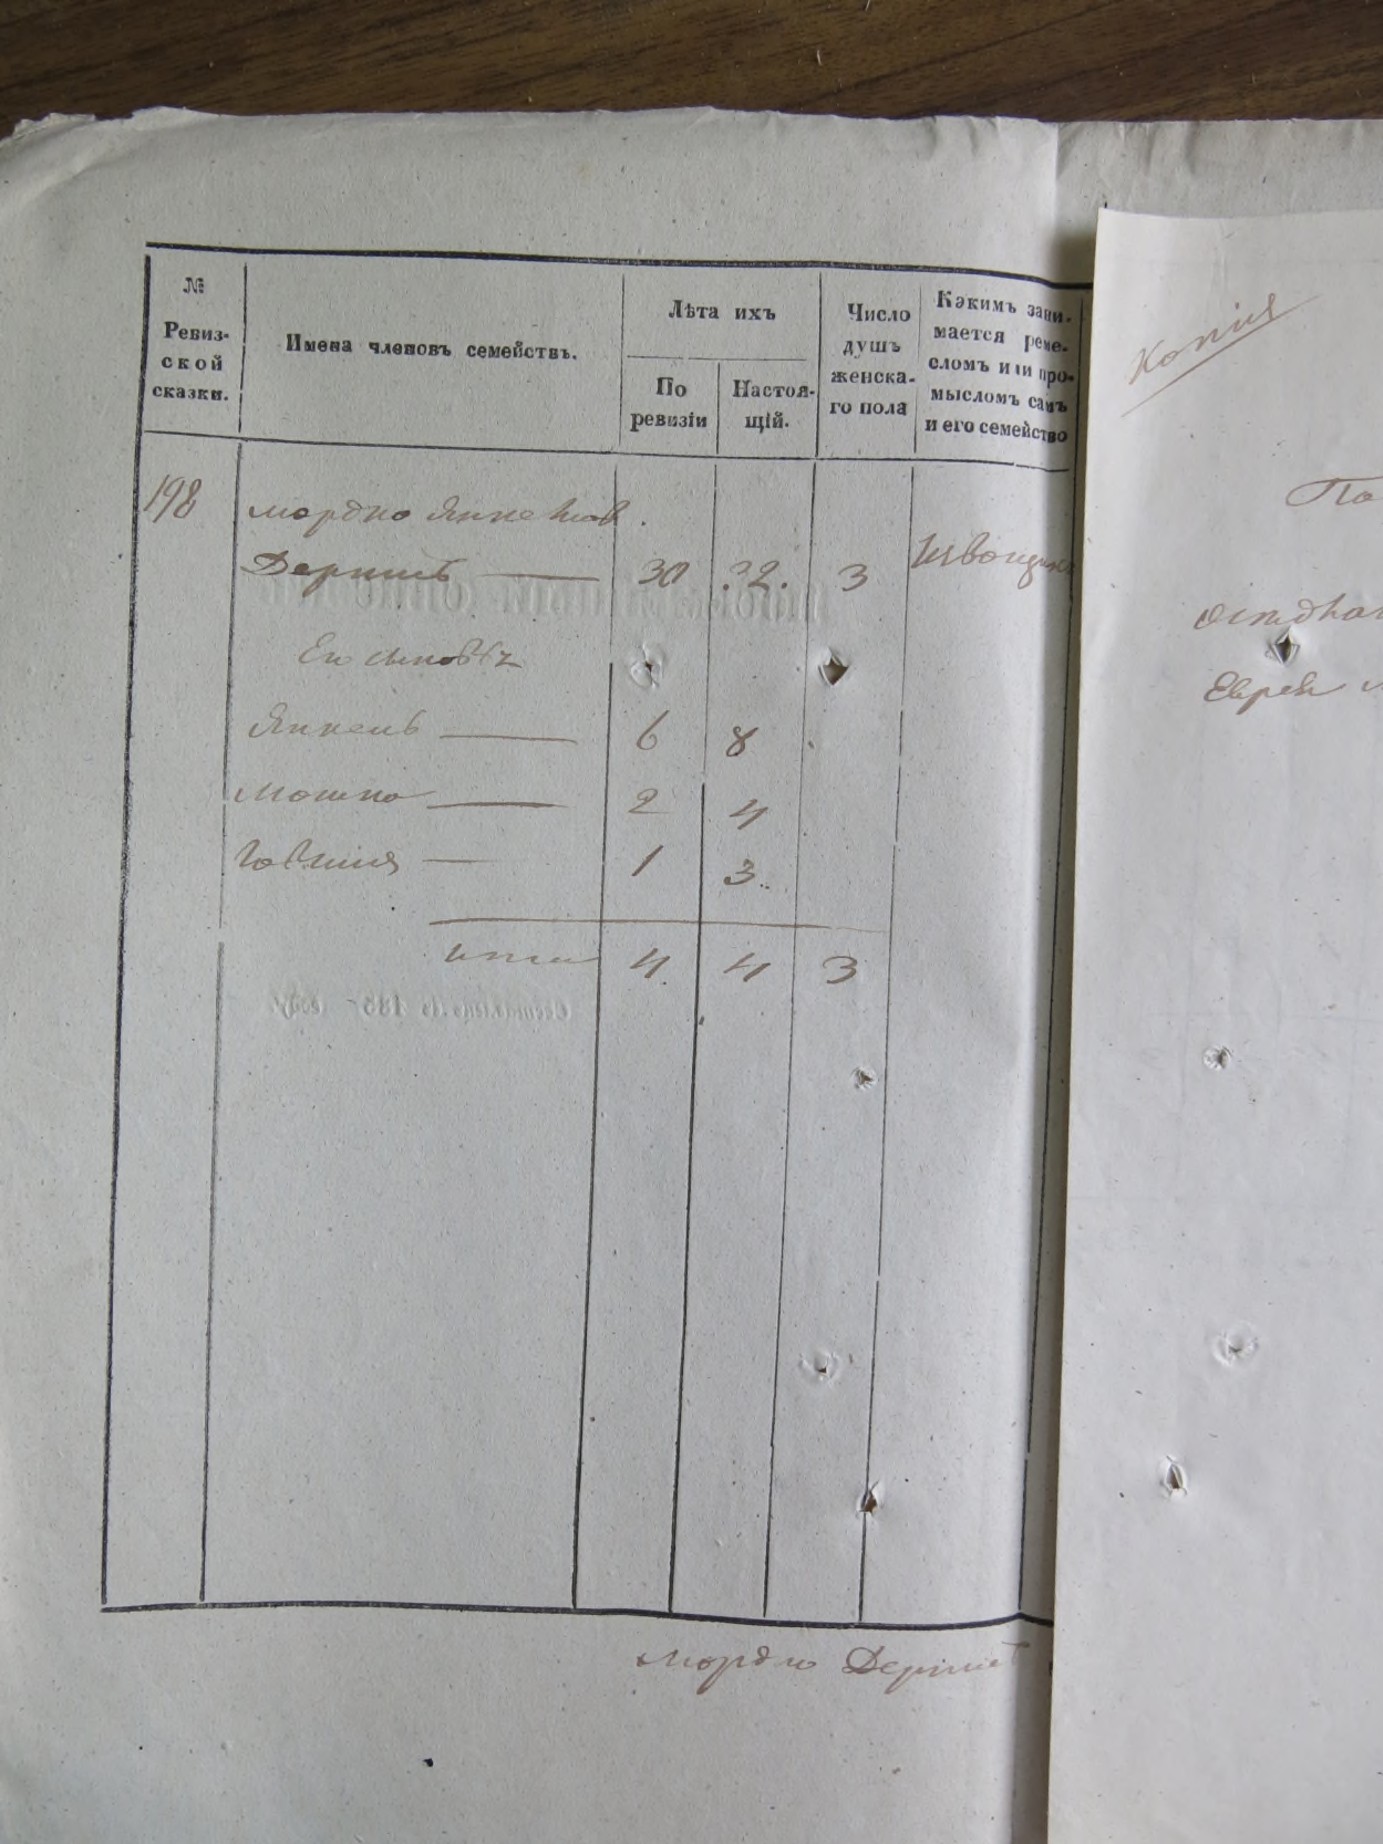 №
Ревиз-
ской
сказки.
Имена членовъ семействъ.
Лѣта ихъ
По
ревизіи
Настоя-
щій.
Число
душъ
женска-
го пола
Какимъ зани-
мается реме-
сломъ или про-
мысломъ самъ
и его семейство
198 мордко Янкелiов
30 32 3 Извощик
Его сыновья
Янкель 6 8
Мошко 2 4
1 3
итого 4 4 3
Мордко
Копия
По
Еврей